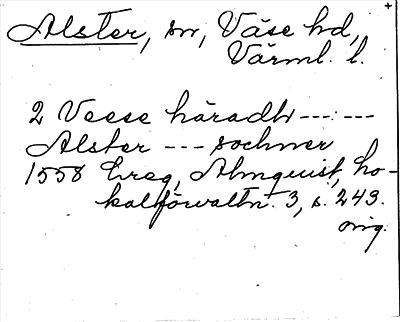 Alster, sn, Väse hd,
Värml. l.
2 Veese häradh --- : ---
Alster --- sochner
1558 breg, Almquist, Lo-
kalförvaltn. 3, s. 249.
orig.